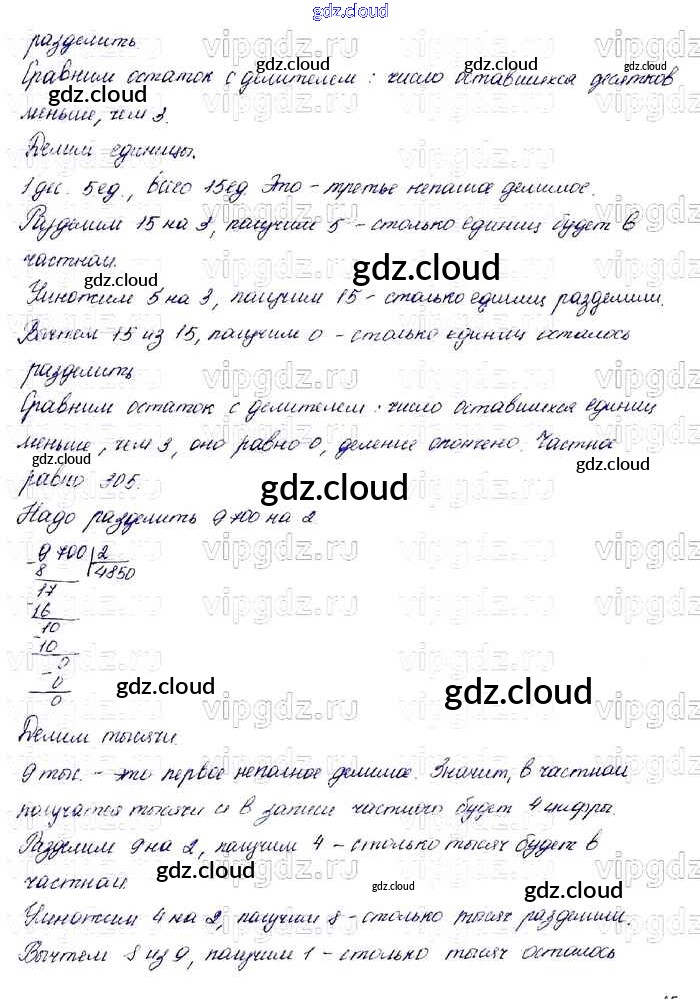 gdz.cloud
разделить.
Сравним остаток с делителем: число оставшихся десятков
gdz.cloud
меньше, чем 3.
Делим единицы.
1 дес. 5 ед., всего 15 ед. Это - третье неполное делимое.
Разделим 15 на 3, получим 5 - столько единиц будет в
частном.
gdz.cloud gdz.cloud gdz.cloud
Умножим 5 на 3, получим 15 - столько единиц разделили.
Вычтем 15 из 15, получим 0 - столько единиц осталось
разделить
Сравним остаток с делителем: число оставшихся единиц
меньше, чем 3, оно равно 0, деление окончено. Частное
gdz.cloud gdz.cloud
равно 305.
gdz.cloud
Надо разделить 9 700 на 2
- 9 700 | 2
8 4850
17
16
- 10
10
- 0
0
0
gdz.cloud gdz.cloud
Делим тысячи.
9 тыс. - это первое неполное делимое. Значит, в частном
получатся тысячи и в записи частного будет 4 цифры.
Разделим 9 на 2, получим 4 - столько тысяч будет в
частном.
gdz.cloud gdz.cloud gdz.cloud
Умножим 4 на 2, получим 8 - столько тысяч разделили.
Вычтем 8 из 9, получим 1 - столько тысяч осталось